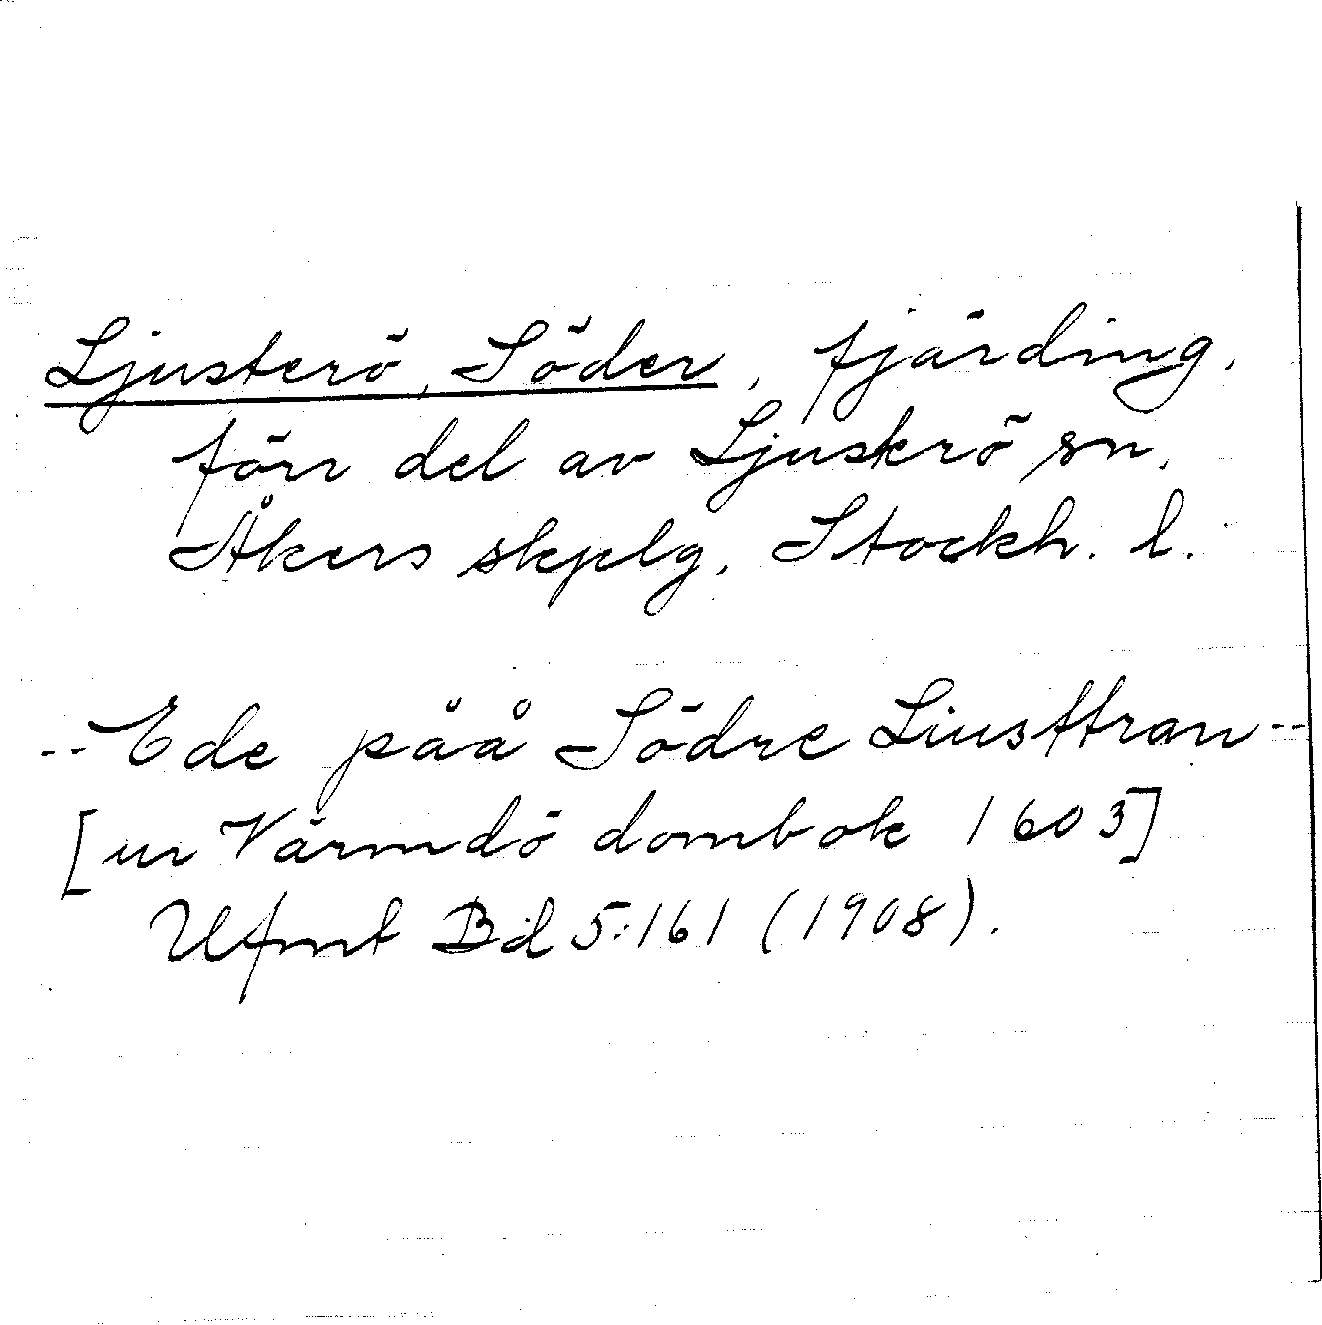 Ljusterö, Söder, fjärding,
förr del av Ljusterö sn,
Åkers skplg, Stockh. l.
-- Ede påå Södre Liusttran --
[ur Värmdö dombok 1603]
Ufmt Bd 5:161 (1908).